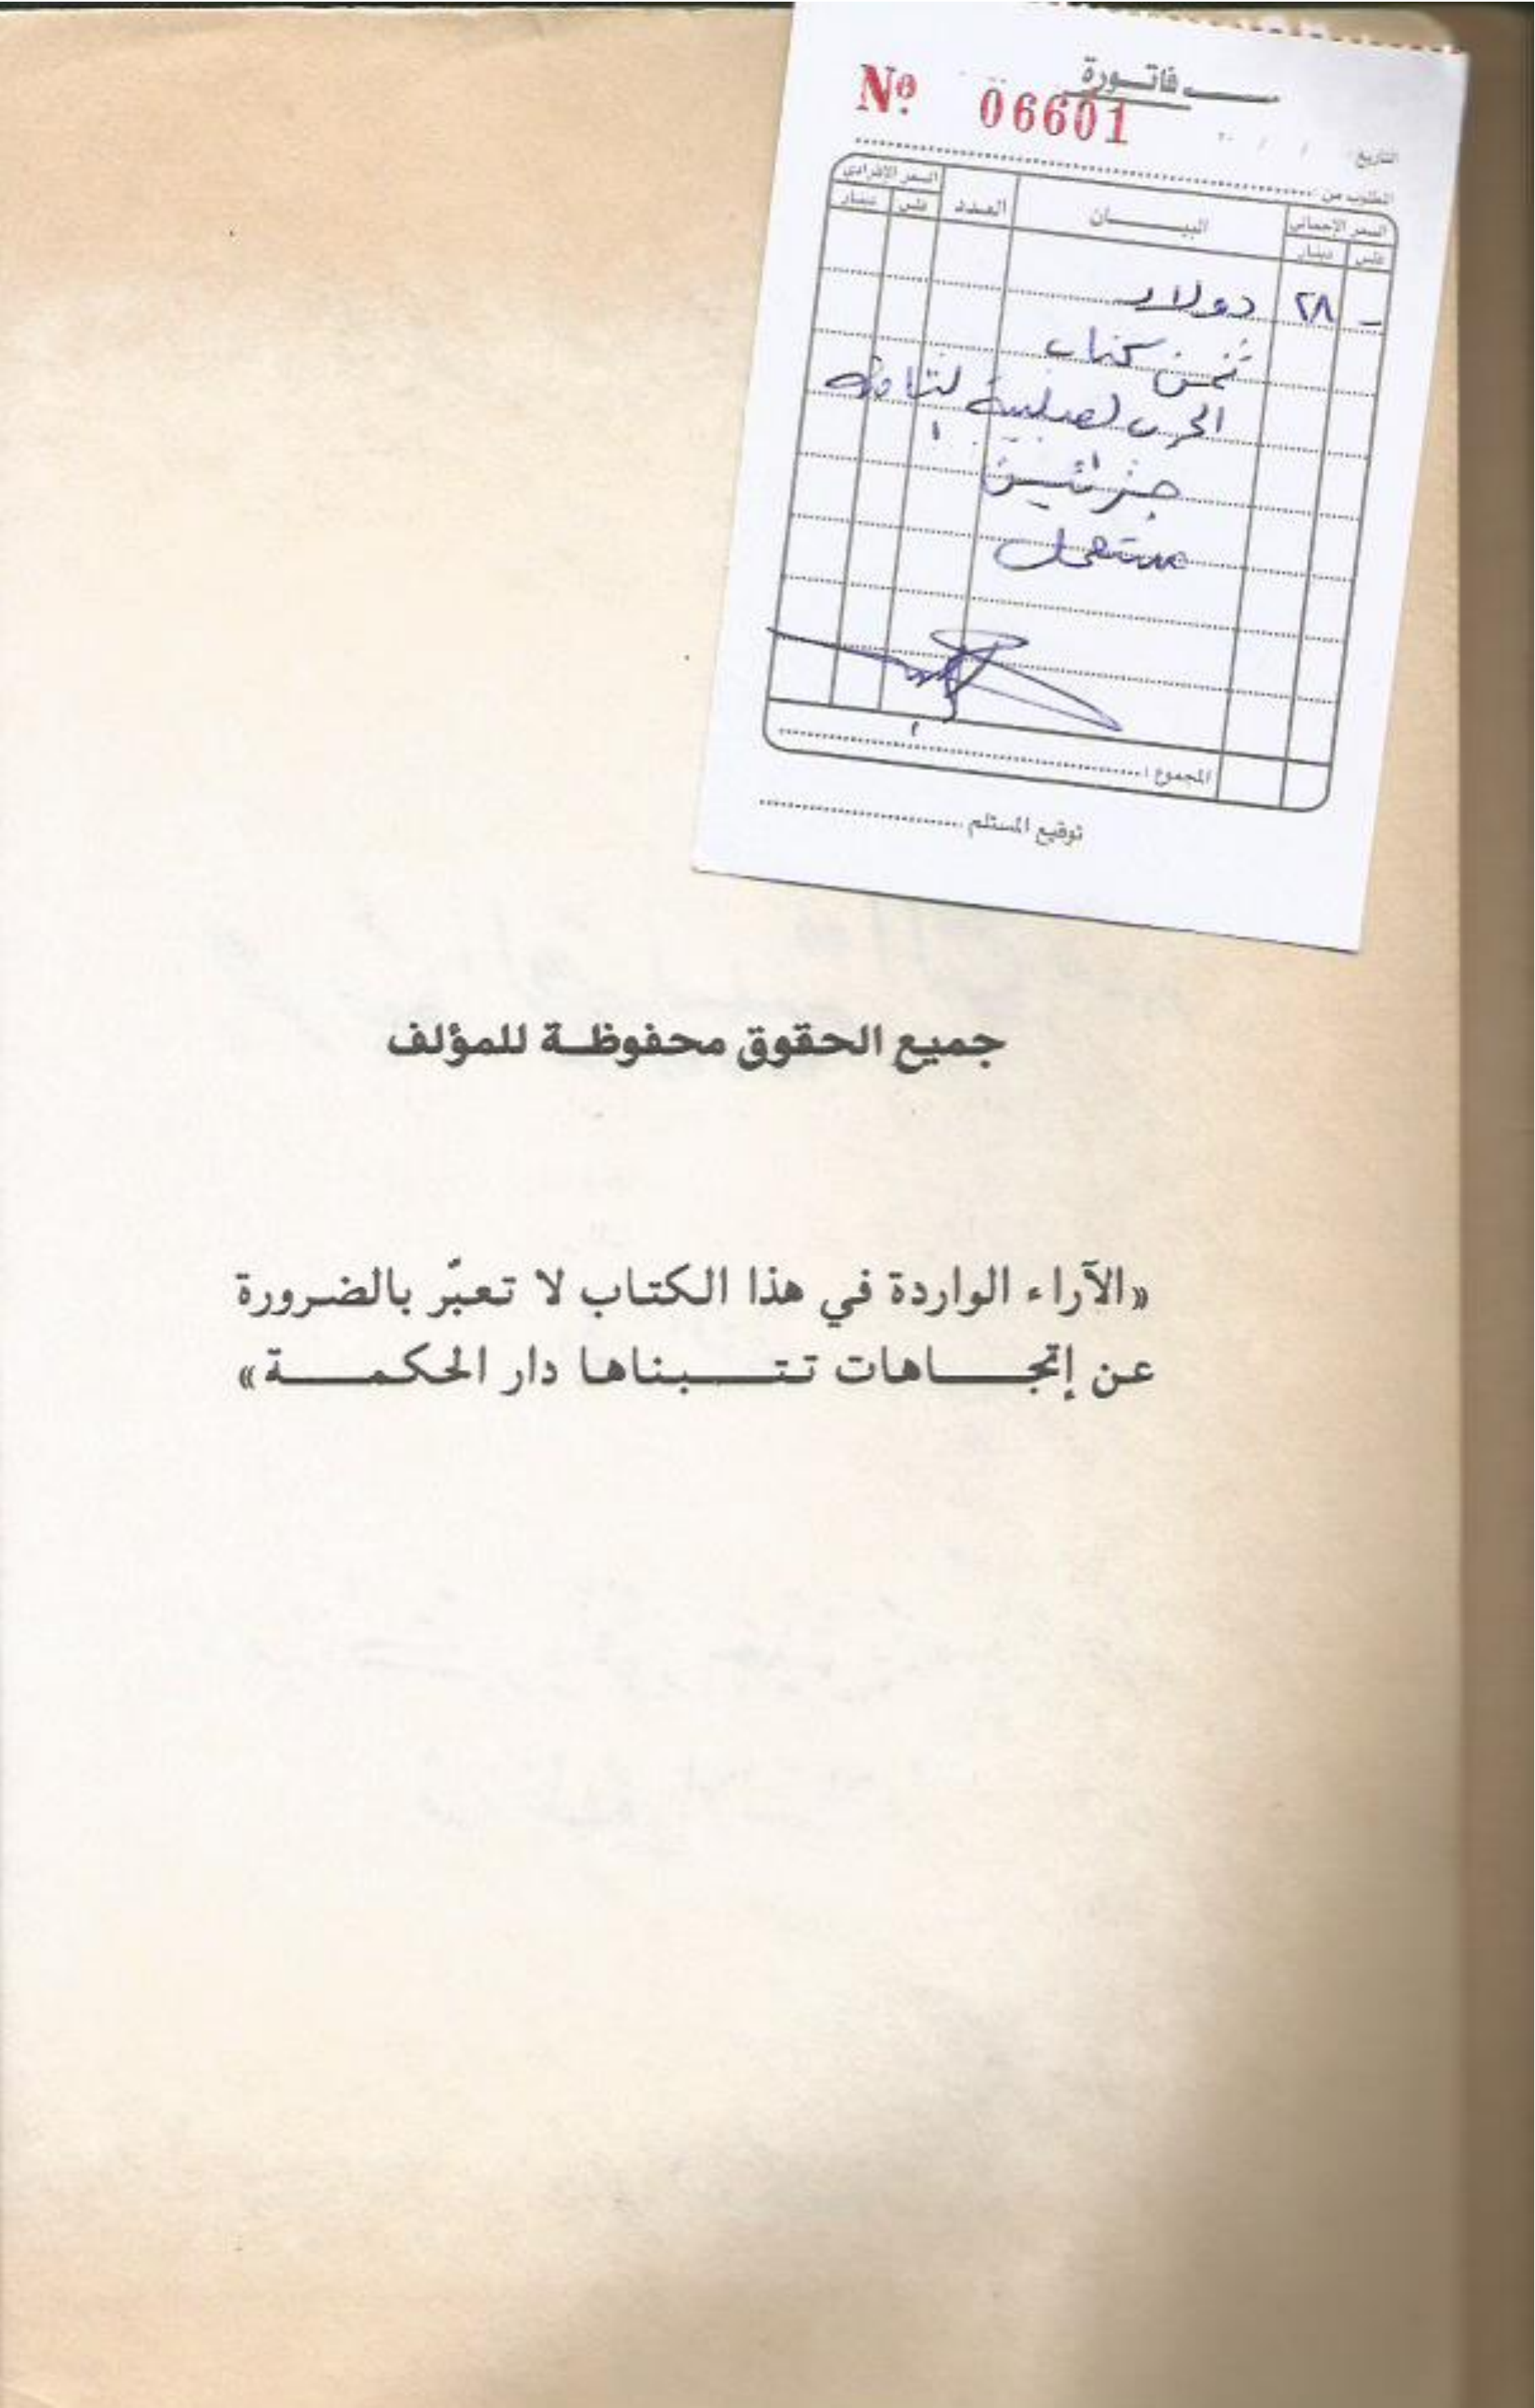 فاتـــورة
№ 06601
التاريخ / / ٢٠
المطلوب من
السعر الإجمالي البيـــــــان العدد السعر الإفرادي
فلس دينار فلس دينار
- ٢٨ دولار
ثمن كتاب
الحرب الصليبية
جزئين
مستعمل
المجموع :
توقيع المستلم
جميع الحقوق محفوظـة للمؤلف
«الآراء الواردة في هذا الكتاب لا تعبّر بالضرورة
عن إتجـــاهات تتـــبناها دار الحكمـــة»